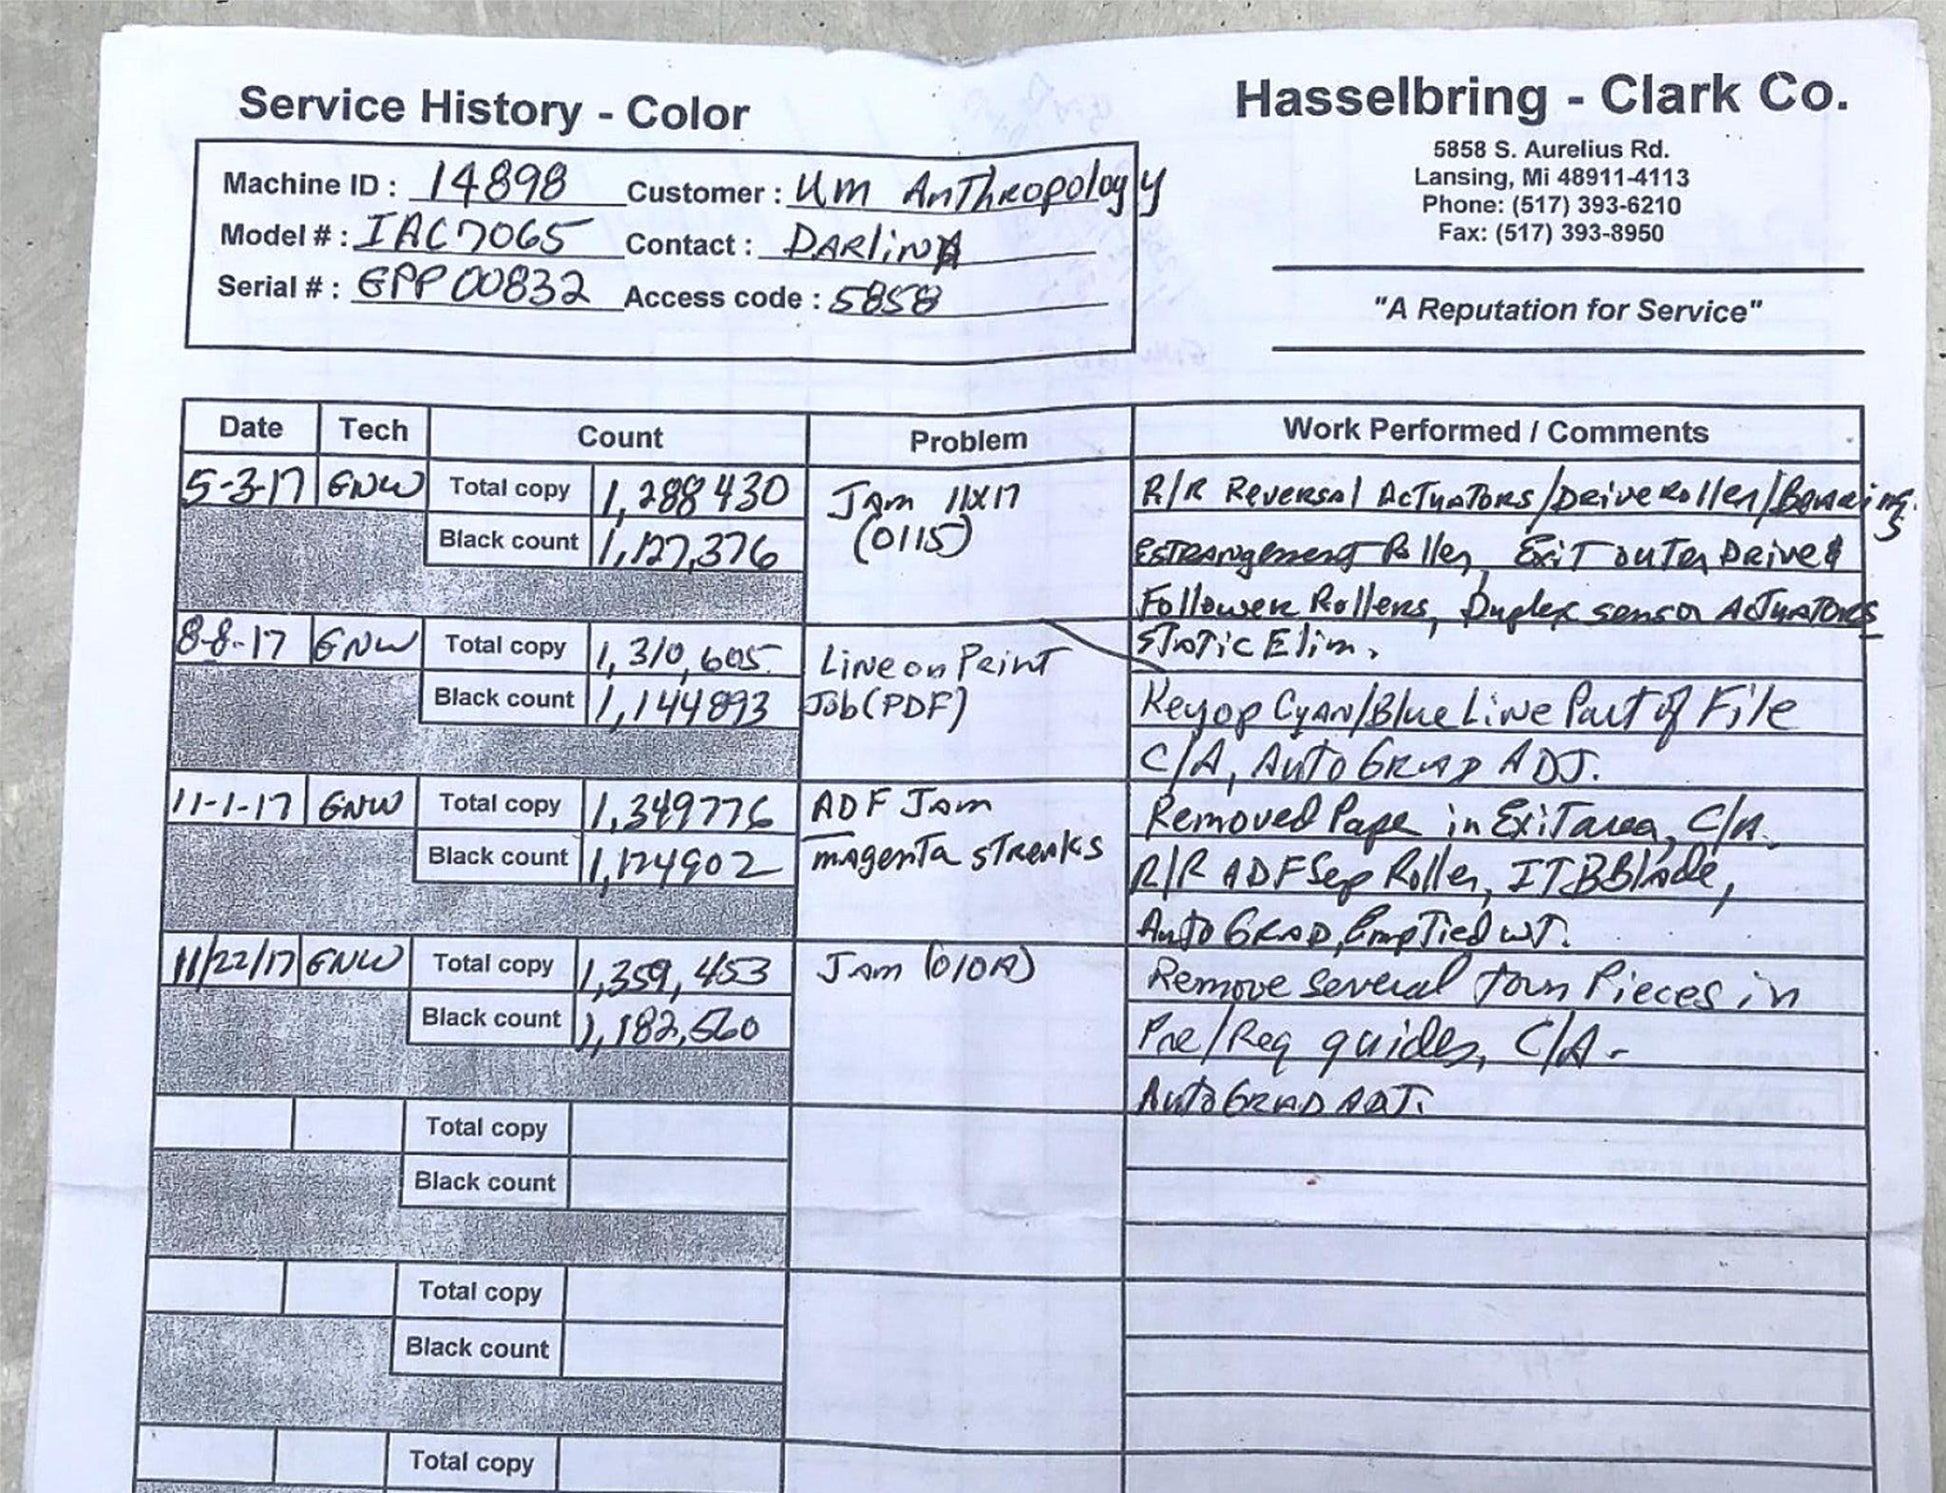 Service History - Color
Hasselbring - Clark Co.
5858 S. Aurelius Rd.
Lansing, Mi 48911-4113
Phone: (517) 393-6210
Fax: (517) 393-8950
"A Reputation for Service"
Machine ID : 14898 Customer : UM AnThropology
Model # : IAC7065 Contact : DARlinA
Serial # : GPP00832 Access code : 5858
Date Tech Count Problem Work Performed / Comments
5-3-17 GNW Total copy 1,288430 Jam 11x17 R/R Reversal AcTuATors/DriveRoller/Bearings.
Black count 1,127,376 (0115) ESTRANgemenT Roller, ExiT outer Drive &
Follower Rollers, Duplex sensor AcTuATors
STATic Elim.
8-8-17 GNW Total copy 1,310,605 Line on Print
Black count 1,144893 Job (PDF) Keyop Cyan/Blue Line Part of File
C/A, Auto GRAD ADJ.
11-1-17 GNW Total copy 1,349776 ADF Jam Removed Pape in ExiT area, C/A.
Black count 1,174902 magenta sTreaks R/R ADF Sep Roller, ITB Blade,
Auto GRAD, EmpTied WT.
11/22/17 GNW Total copy 1,359,453 Jam (010A) Remove several torn Pieces in
Black count 1,182,560 Pre/Reg guides, C/A-
Auto GRAD ADJ.
Total copy
Black count
Total copy
Black count
Total copy